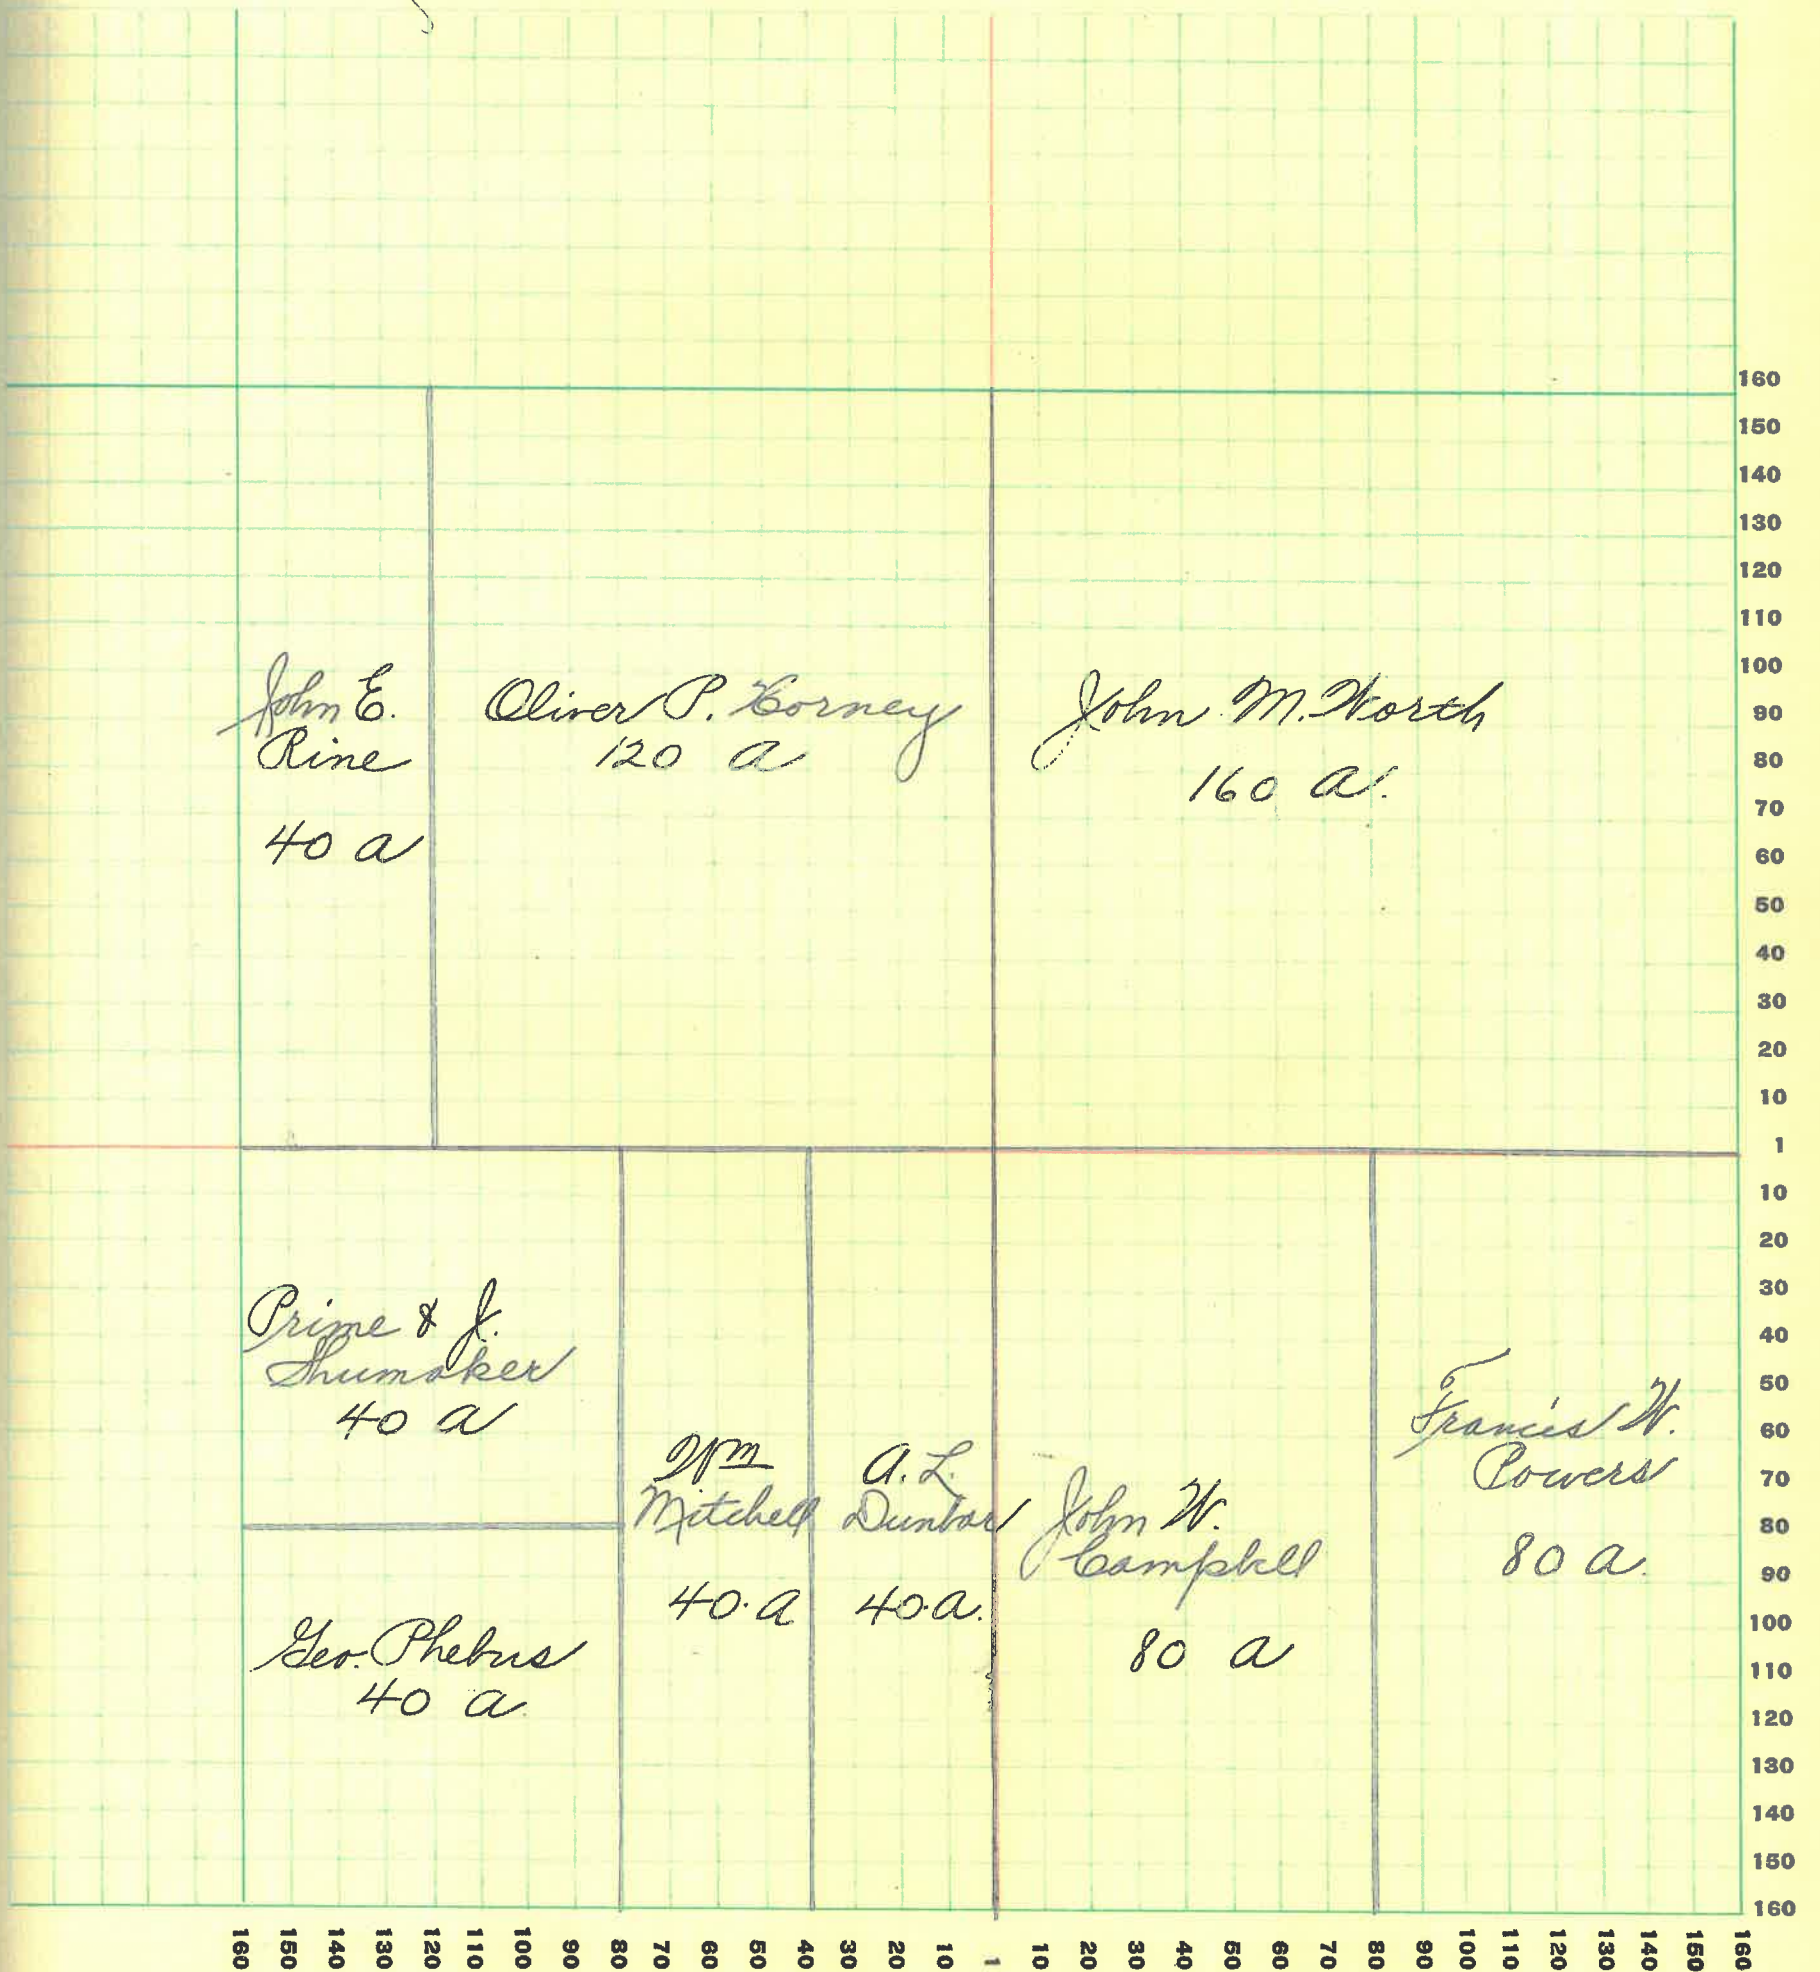 John E.
Rine
40 a
Oliver P. Corney
120 a
John M. Worth
160 a.
Prime & J.
Shumaker
40 a
Geo. Phebus
40 a.
Wm
Mitchell
40. a
A. L.
Dunbar
40. a.
John W.
Campbell
80 a
Francis W.
Powers
80 a.
160
150
140
130
120
110
100
90
80
70
60
50
40
30
20
10
1
10
20
30
40
50
60
70
80
90
100
110
120
130
140
150
160
160 150 140 130 120 110 100 90 80 70 60 50 40 30 20 10 1 10 20 30 40 50 60 70 80 90 100 110 120 130 140 150 160